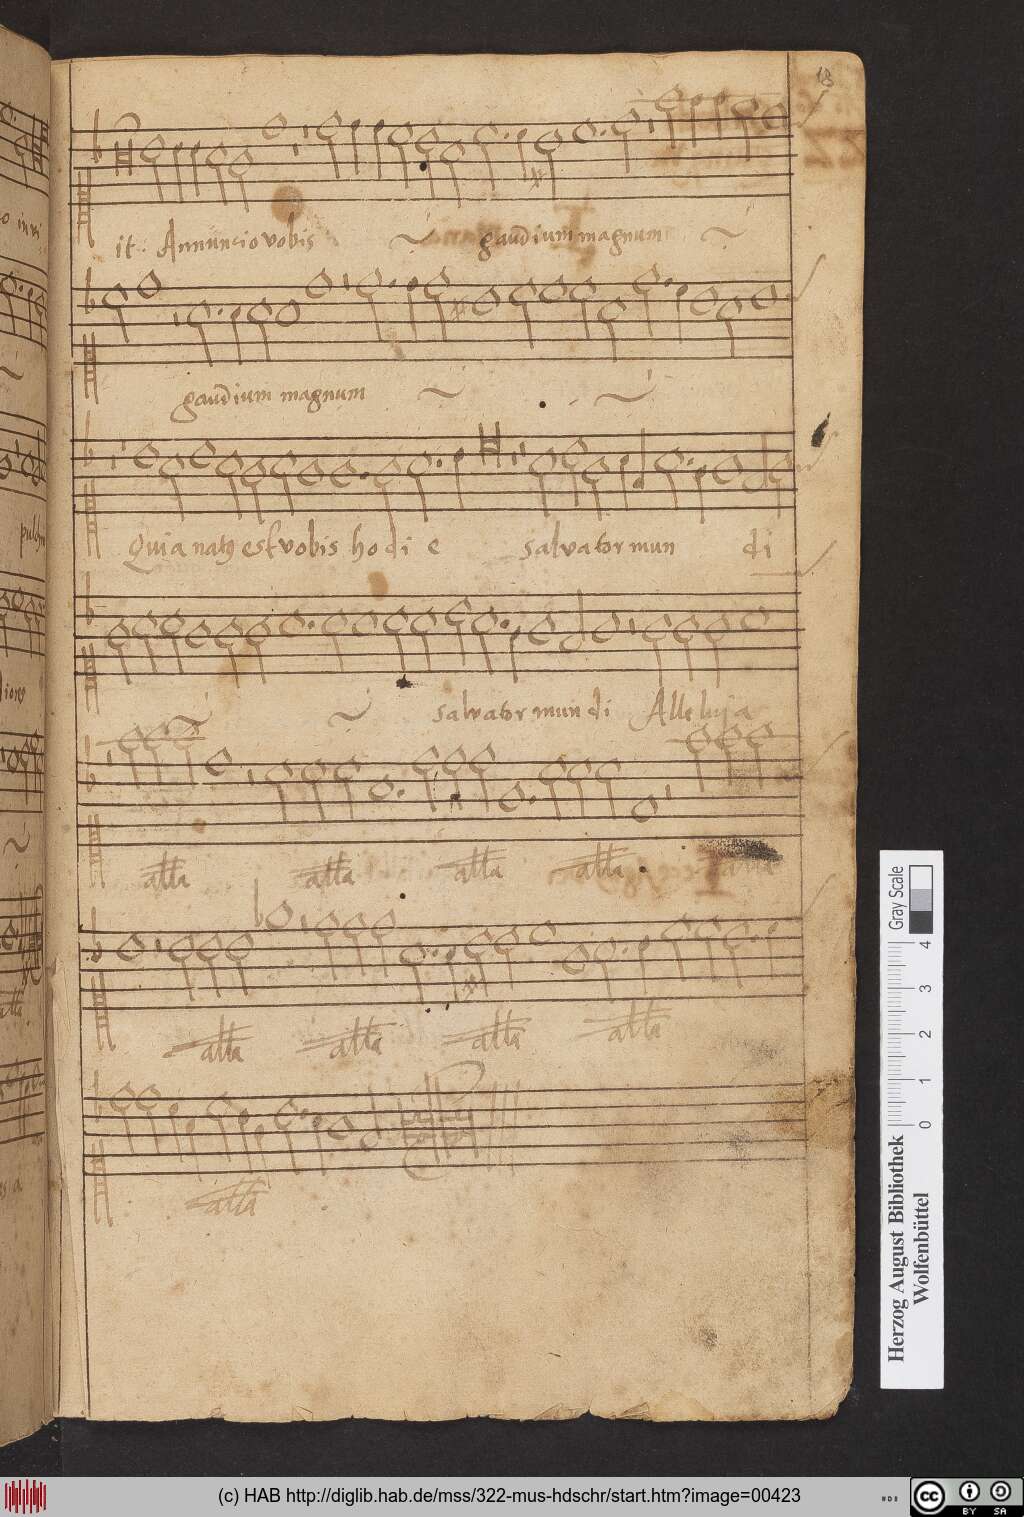 18
it: Annuncio vobis gaudium magnum
gaudium magnum
Quia natꝰ est vobis hodi e salvator mun di
salvator mundi Alleluia
alla alla alla alla alla
alla alla alla alla
alla
Gray Scale
0 1 2 3 4
Herzog August Bibliothek
Wolfenbüttel
(c) HAB http://diglib.hab.de/mss/322-mus-hdschr/start.htm?image=00423
cc BY SA